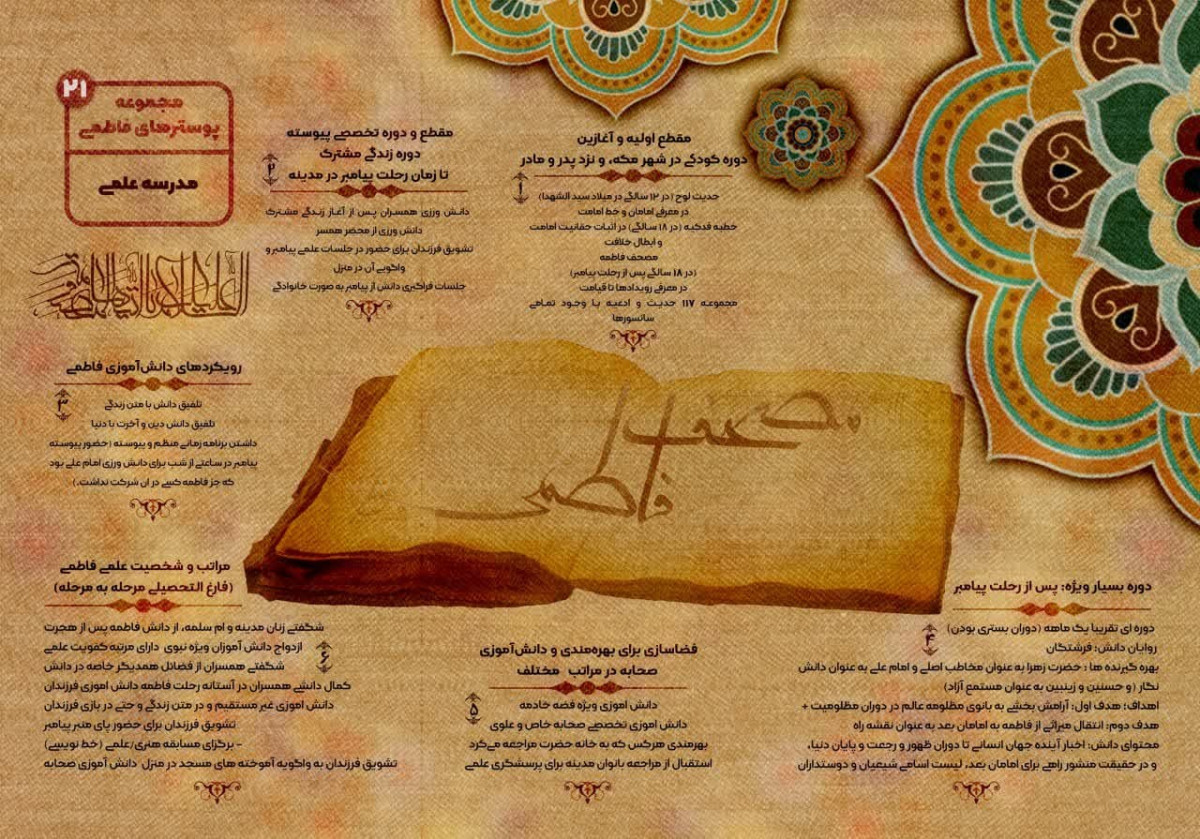 ۲۱
مجموعه
پوسترهای فاطمی
مدرسه علمی
مقطع اولیه و آغازین
دوره کودکی در شهر مکه، و نزد پدر و مادر
۱
حدیث لوح (در ۱۲ سالگی در میلاد سید الشهدا)
در معرفی امامان و خط امامت
خطبه فدکیه (در ۱۸ سالگی) در اثبات حقانیت امامت
و ابطال خلافت
مصحف فاطمه
(در ۱۸ سالگی پس از رحلت پیامبر)
در معرفی رویدادها تا قیامت
مجموعه ۱۱۷ حدیث و ادعیه با وجود تمامی
سانسورها
مقطع و دوره تخصصی پیوسته
دوره زندگی مشترک
تا زمان رحلت پیامبر در مدینه
۲
دانش ورزی همسران پس از آغاز زندگی مشترک
دانش ورزی از محضر همسر
تشویق فرزندان برای حضور در جلسات علمی پیامبر و
واگویی آن در منزل
جلسات فراگیری دانش از پیامبر به صورت خانوادگی
رویکردهای دانش‌آموزی فاطمی
۳
تلفیق دانش با متن زندگی
تلفیق دانش دین و آخرت با دنیا
داشتن برنامه زمانی منظم و پیوسته (حضور پیوسته
پیامبر در ساعتی از شب برای دانش ورزی امام علی بود
که جز فاطمه کسی در ان شرکت نداشت.)
مصحف
فاطمی
دوره بسیار ویژه: پس از رحلت پیامبر
۴
دوره ای تقریبا یک ماهه (دوران بستری بودن)
روایان دانش: فرشتگان
بهره گیرنده ها : حضرت زهرا به عنوان مخاطب اصلی و امام علی به عنوان دانش
نگار (و حسنین و زینبین به عنوان مستمع آزاد)
اهداف؛ هدف اول: آرامش بخشی به بانوی مظلومه عالم در دوران مظلومیت +
هدف دوم: انتقال میراثی از فاطمه به امامان بعد به عنوان نقشه راه
محتوای دانش: اخبار آینده جهان انسانی تا دوران ظهور و رجعت و پایان دنیا،
و در حقیقت منشور راهی برای امامان بعد، لیست اسامی شیعیان و دوستداران
فضاسازی برای بهره‌مندی و دانش‌آموزی
صحابه در مراتب مختلف
۵
دانش اموزی ویژه فضه خادمه
دانش اموزی تخصصی صحابه خاص و علوی
بهرمندی هرکس که به خانه حضرت مراجعه می‌کرد
استقبال از مراجعه بانوان مدینه برای پرسشگری علمی
مراتب و شخصیت علمی فاطمی
(فارغ التحصیلی مرحله به مرحله)
۶
شگفتی زنان مدینه و ام سلمه، از دانش فاطمه پس از هجرت
ازدواج دانش آموزان ویژه نبوی دارای مرتبه کفویت علمی
شگفتی همسران از فضائل همدیگر خاصه در دانش
کمال دانشی همسران در آستانه رحلت فاطمه دانش اموزی فرزندان
دانش اموزی غیر مستقیم و در متن زندگی و حتی در بازی فرزندان
تشویق فرزندان برای حضور پای منبر پیامبر
- برگزاری مسابقه هنری/علمی (خط نویسی)
تشویق فرزندان به واگویه آموخته های مسجد در منزل دانش آموزی صحابه